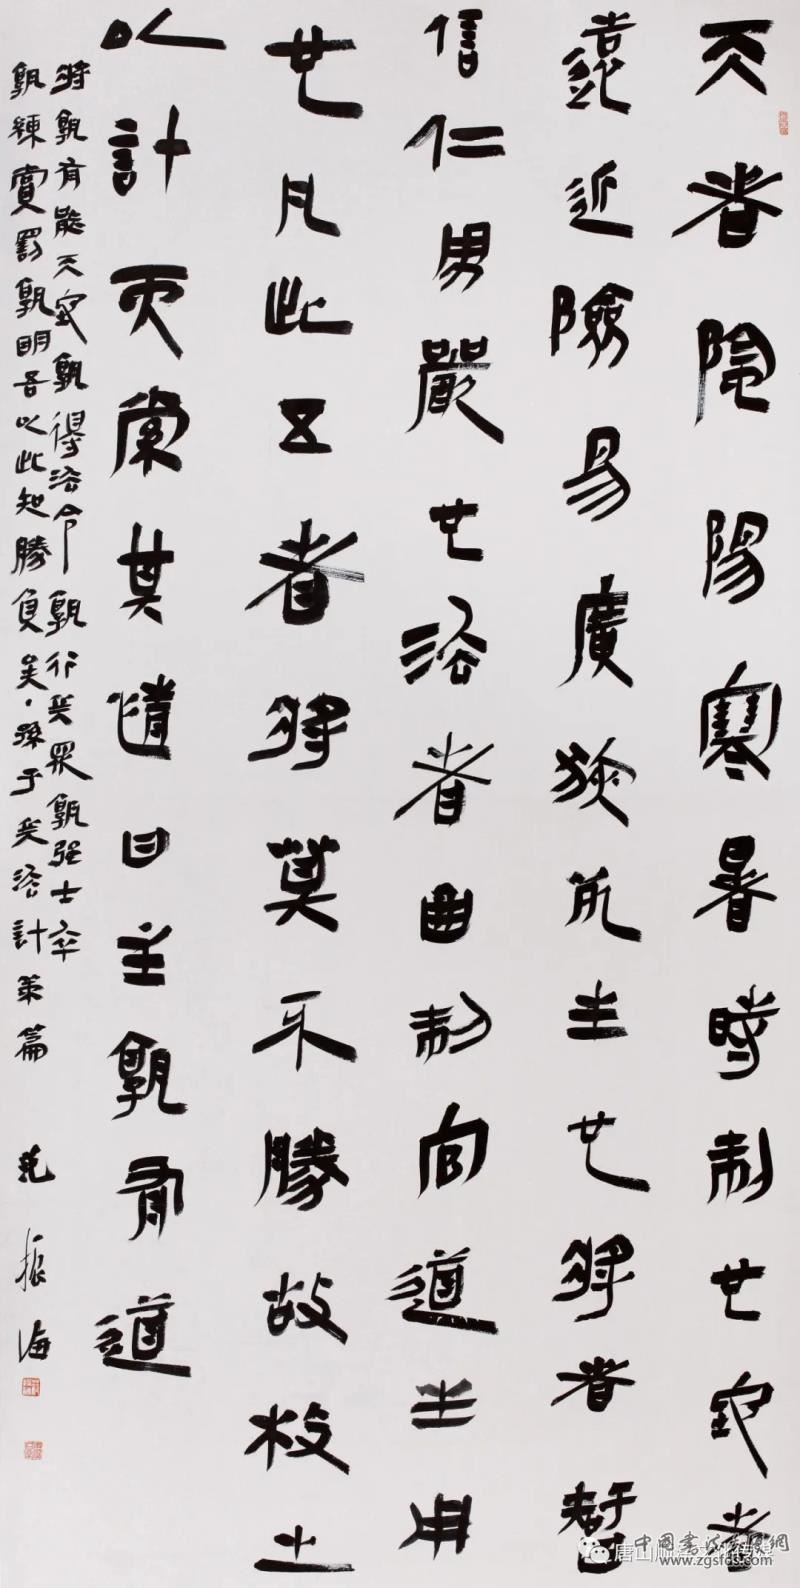 天者陰陽寒暑時制也地者
遠近險易廣狹死生也將者智
信仁勇嚴也法者曲制向道主用
也凡此五者將莫不勝故校之
以計而索其情曰主孰有道
將孰有能天地孰得法令孰行兵眾孰强士卒
孰練賞罰孰明吾以此知勝負矣孫子兵法計策篇 范振海
唐山
www.zgsfds.com